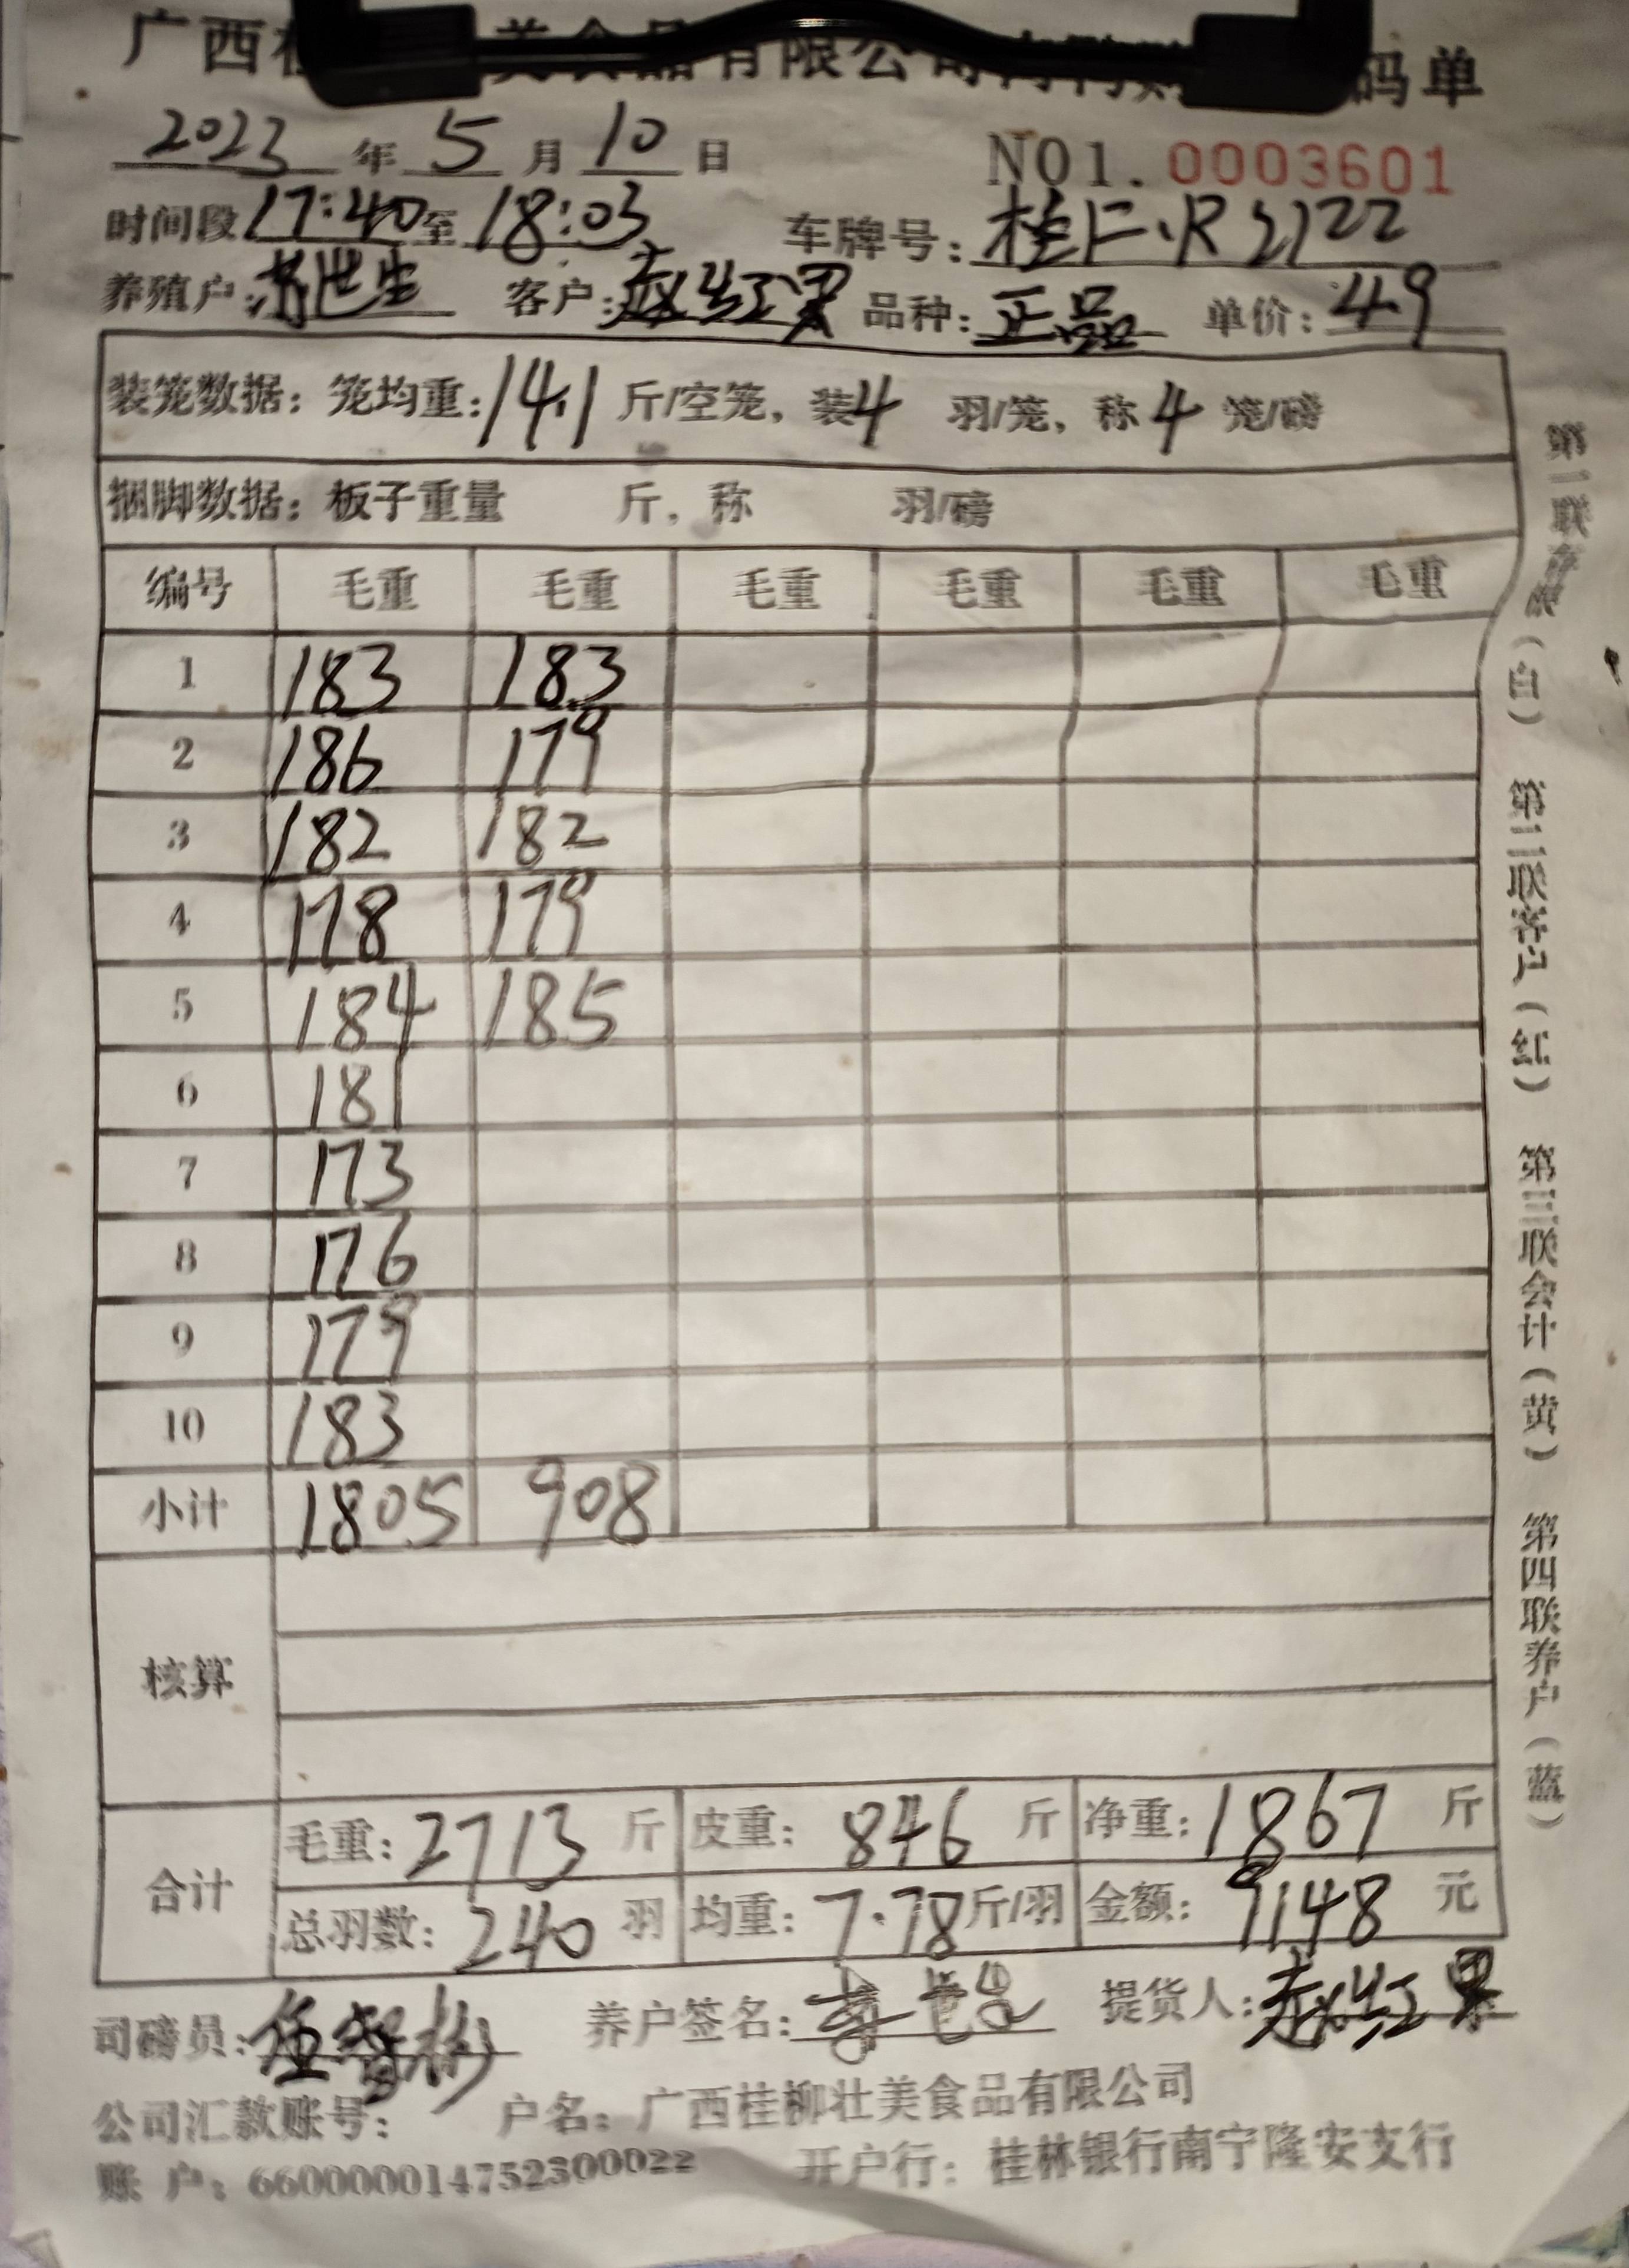 广西桂 美食品有限公司 码单
2023 年 5 月 10 日 NO1. 0003601
时间段 17:40 至 18:03 车牌号: 桂F·R2122
养殖户: 客户: 赵红果 品种: 正品 单价: 4.9
装笼数据: 笼均重: 14.1 斤/空笼, 装 4 羽/笼, 称 4 笼/磅
捆脚数据: 板子重量 斤, 称 羽/磅
编号 毛重 毛重 毛重 毛重 毛重 毛重
1 183 183
2 186 179
3 182 182
4 178 179
5 184 185
6 181
7 173
8 176
9 179
10 183
小计 1805 908
核算
合计
毛重: 2713 斤 皮重: 846 斤 净重: 1867 斤
总羽数: 240 羽 均重: 7.78 斤/羽 金额: 9148 元
司磅员: 养户签名: 提货人: 赵红果
公司汇款账号: 户名: 广西桂柳壮美食品有限公司
账 户: 660000014752300022 开户行: 桂林银行南宁隆安支行
(白) 第二联客户 (红) 第三联会计 (黄) 第四联养户 (蓝)